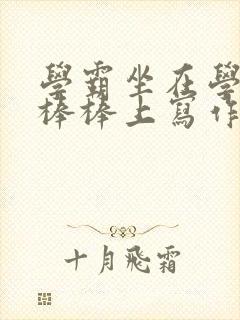 學霸坐在學
棒棒上寫作
十月飛霜